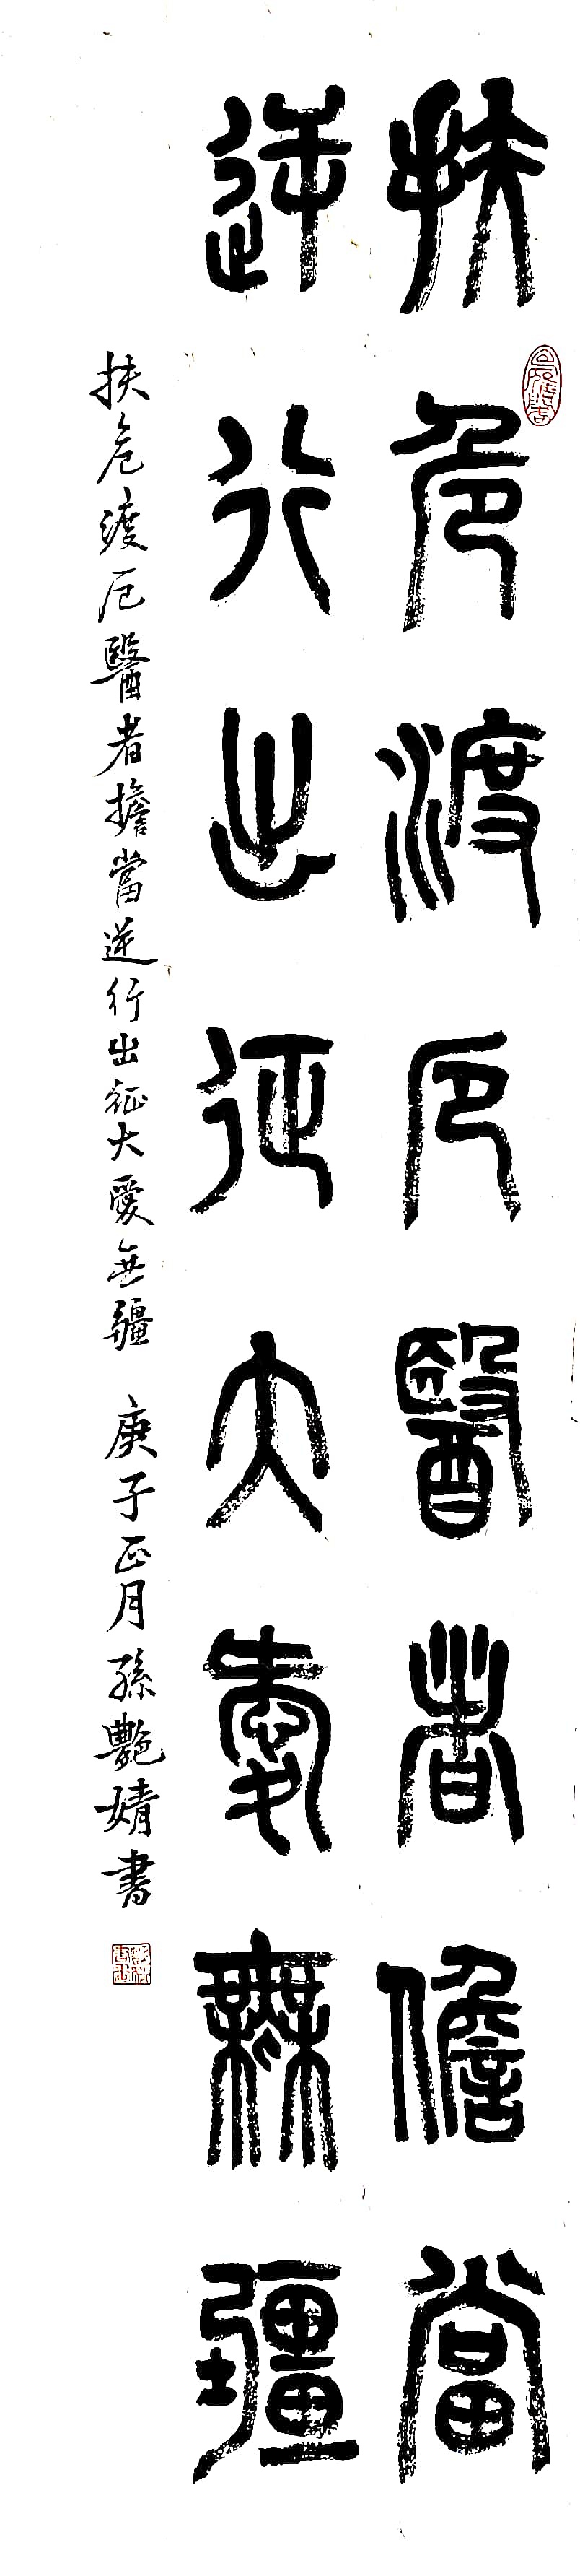 扶危渡厄醫者儋當
逆行出征大愛無疆
扶危渡厄醫者擔當逆行出征大愛無疆 庚子正月孫艷婧書